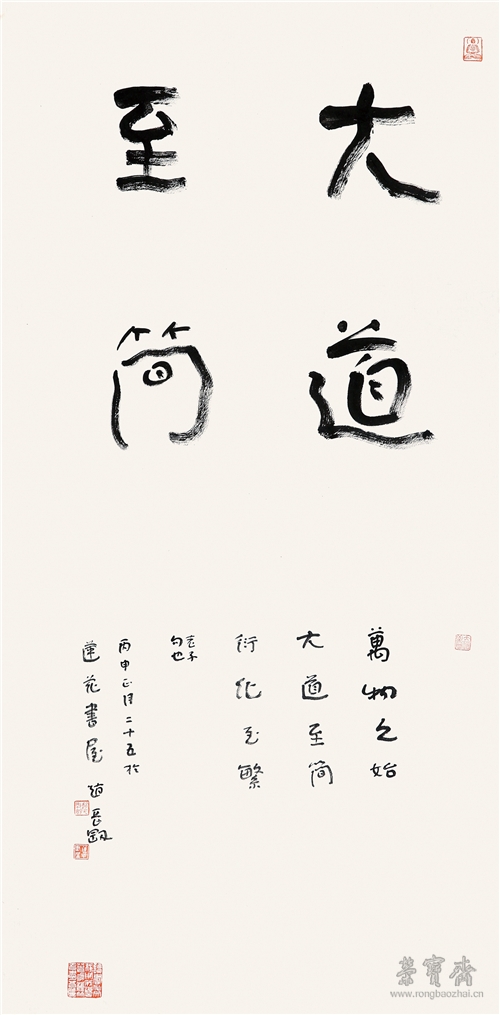 大道
至简
萬物之始
大道至简
衍化至繁
老子
句也
丙申正月二十五於
蓮花書屋 趙長剛
榮寶齋
www.rongbaozhai.cn